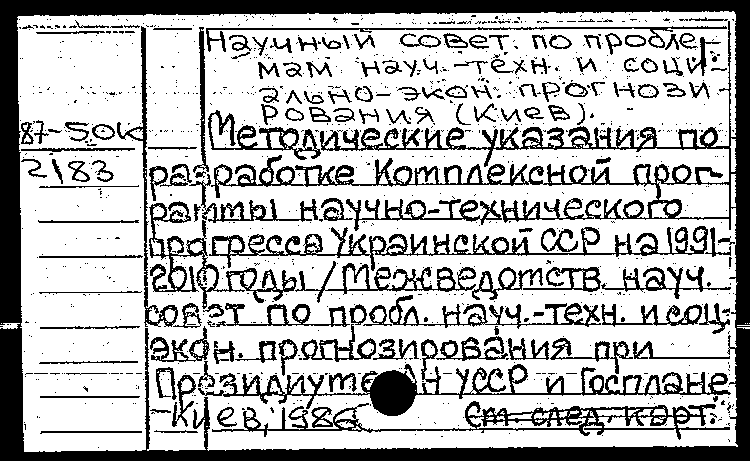 Научный совет. по пробле-
мам науч.-техн. и соци-
ально-экон. прогнози-
рования (Киев).
87-50к Методические указания по
2183 разработке Комплексной прог-
раммы научно-технического
прогресса Украинской ССР на 1991-
2010 годы / Межведомств. науч.
совет по пробл. науч.-техн. и соц.-
экон. прогнозирования при
Президиуме АН УССР и Госплане
-Киев, 1986 См. след. карт.